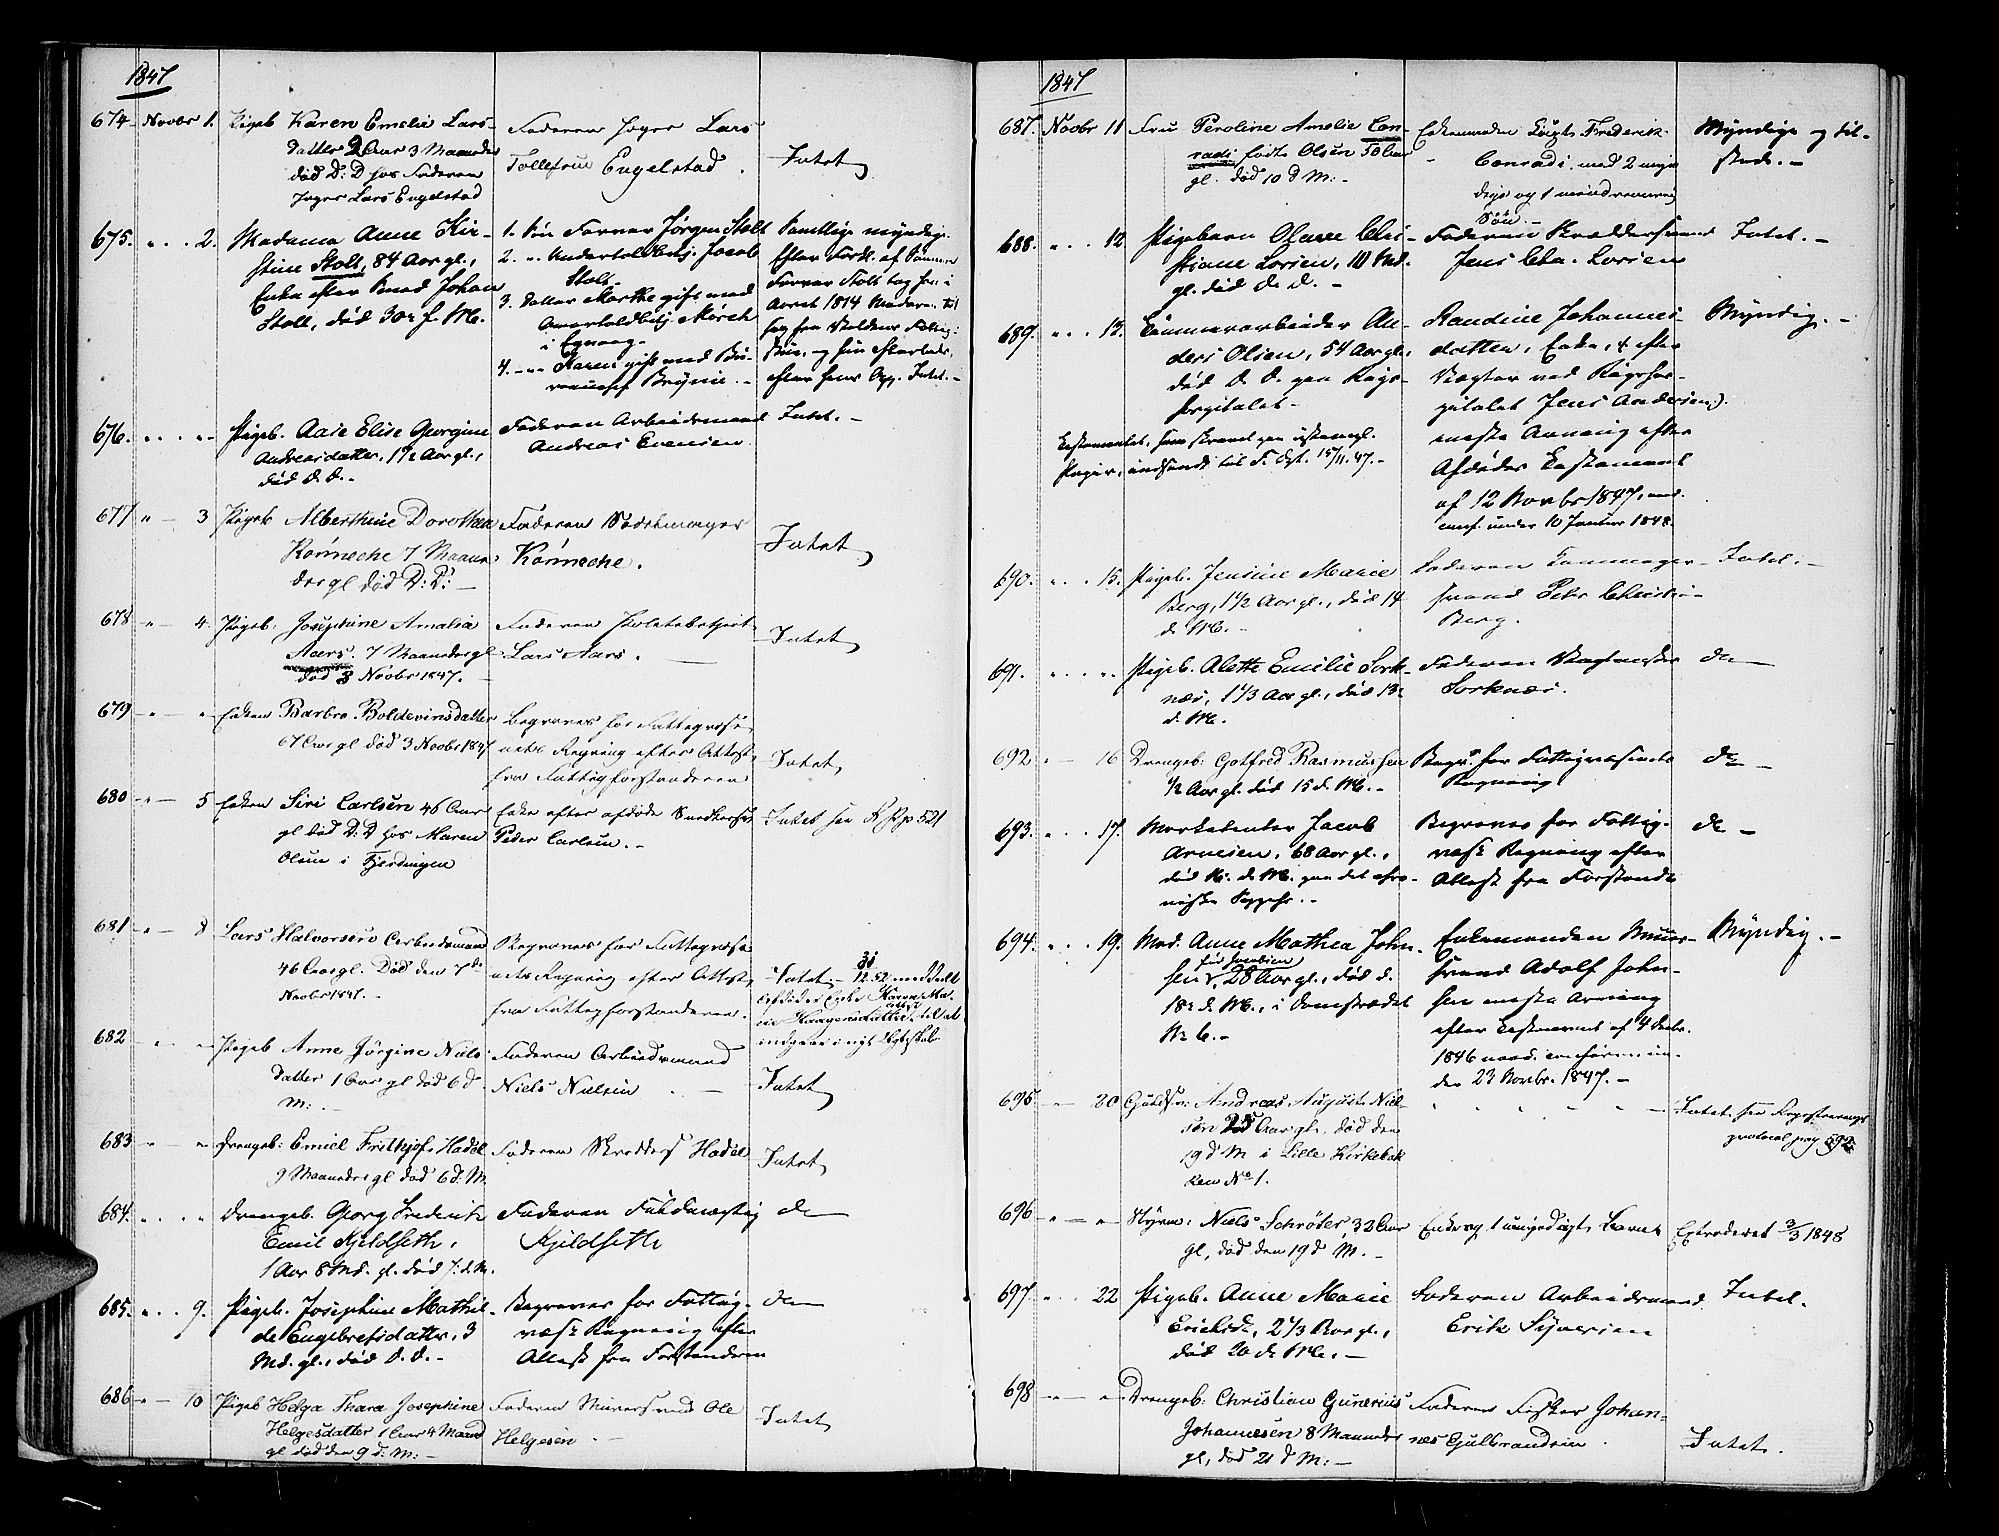 1847
674 Novbr 1. Pigeb Karen Emelie Lars-
datter 2 Aar 3 Maaneder
død D: D hos Faderen
Lars Engelstad
Faderen Lars
Tollefsen Engelstad.
Intet
675. " 2. Madame Anne Kir-
stine Stolt, 84 Aar gl.,
Enke efter Johan
Stolt, død 30 f. M.
1. Søn Farver Jørgen Stolt
2. " Jacob
Stolt
3. Datter Marthe gift med
Mørch
i
4. " Karen gift med
Brynie. -
Samtlige myndige.
Efter Forkl. af Sønnen
Farver Stolt tog han i
Aaret 1814 Moderen til
sig fra
og hun efterlader,
efter hans Opg. Intet. -
676. " " Pigeb. Aase Elise Georgine
Andreasdatter, 1 1/2 Aar gl.,
død d. D. -
Faderen Arbeidsmand
Andreas Evensen
Intet. -
677 " 3 Pigeb Alberthine Dorothea
Könneche 7 Maane-
der gl død D: D: -
Faderen Sadelmager
Könneche.
Intet
678 " 4. Pigeb: Josephine Amalia
Aars. 7 Maaneder gl
død 3 Novbr 1847. -
Faderen
Lars Aars.
Intet
679 " " Enken Barbro Boldevinsdatter
67 Aar gl død 3 Novbr 1847
Begraves for Fattigvæse-
nets Regning efter Attest
fra Fattigforstanderen
Intet
680 " 5 Enken Siri Carlsen 46 Aar
gl død D: D hos Maren
Olsen i Fjerdingen
Enke efter afdøde
Peder Carlsen. -
Intet see 521
681 " 8 Lars Halvorsen Arbeidsmand
46 Aar gl. Død den 7de
Novbr 1847. -
Begraves for Fattigvæse-
nets Regning efter Attest
fra Fattigforstanderen.
Intet - 12.52 meddelt
Enke Karen Ma-
Haagensdatter til at
indgaae i nyt Ægteskab
682 " " Pigeb Anne Jørgine Niels
datter 1 Aar gl død 6 d
M: -
Faderen Arbeidsmand
Niels Nielsen
Intet
683 " " Drengeb: Emiel Frithjof Hadel
9 Maaneder gl død 6 d: M.
Faderen Skrædders Hadel
Intet
684. " " Drengeb. Georg Frederik
Emil Kjeldseth,
1 Aar 8 Md. gl. død 7. d. M.
Faderen
Kjeldseth
do
685. " 9. Pigeb. Josephine Mathil-
de Engebretsdatter, 3
Md. gl., død d. D. -
Begraves for Fattig-
væs: Regning efter
Attest fra Forstanderen
do
686 " 10 Pigeb Helga Thara Josephine
Helgesdatter 1 Aar 4 Maand
gl død den 9 d: M: -
Faderen Muursvend Ole
Helgesen
Intet
1847
687. Novbr 11 Frue Peroline Amalie Con-
radi født Olsen 50 Aar
gl. død 10 d M: -
Enkemanden Frederik
Conradi med 2 myn
dige og 1 mindreaarig
Søn. -
Myndige og til-
stede. -
688. " 12 Pigebarn Olave Chri-
stiane Lorien, 10 Md.
gl. død d. D. -
Faderen Skræddersvend
Jens Chr. Lorien
Intet. -
689. " 13. Tømmerarbeider An-
ders Olsen, 54 Aar gl.,
død d. D. paa Rigs-
hospitalet. -
Testamentet, som skrevet paa ustempl.
Papir, indsendt til F. Dpt. 15/11. 47. -
Randine Johannes-
datter, Enke, efter
Vægter ved Rigshos-
pitalet Jens Andersen).
eneste Arving efter
Afdødes Testament
af 12 Novbr 1847,
under 10 Januar 1848.
Myndig. -
690. " 15. Pigeb. Jensine Marie
Berg, 1 1/2 Aar gl., død 14
d. M. -
Faderen
svend Petr Christi-
Berg.
Intet. -
691. " " Pigeb. Alette Emilie Sork-
næs, 1 1/3 Aar gl., død 13
d. M.
Faderen Vagtmester
Sorknæs.
do
692 " 16 Drengeb: Gotfred Rasmussen
1/2 Aar gl. død 15 d. M. -
Begr. for Fattigvæsenets
Regning
do
693. " 17. Marketenter Jacob
Arnesen, 68 Aar gl.,
død 16. d. M. paa det chro-
niske Sygehs. -
Begraves for Fattig-
væs: Regning efter
Attest fra Forstandr
do -
694. " 19. Mad. Anne Mathea John-
sen f. Jacobsen, 28 Aar gl., død d.
18 d. M., i Dronstrædet
No 6. -
Enkemanden Muur-
svend Adolf John-
sen eneste Arving
efter Testament af 4 Decbr.
1846
den 23 Novbr. 1847. -
Myndig. -
695 " 20 Guldsm: Andreas August Niel-
sen 25 Aar gl. død den
19 d M i Lille Kirkebak
ken No 1.
Intet, see Registrerings
protocol pag 592
696 " " Styrm: Niels Schröter, 32 Aar
gl, død den 19 d M. -
Enke og 1 umyndigt Barn
Extraderet 3/3 1848
697 " 22 Pigeb. Anne Marie
Ericksd., 2 1/3 Aar gl.,
død 20 d. M. -
Faderen Arbeidsmand
Erik Syversen
Intet.
698 " " Drengeb: Christian Gunerius
Johannesen 8 Maaneder
gl, død 21 d M: -
Faderen Fisker Johan-
nes Gulbrandsen
Intet.